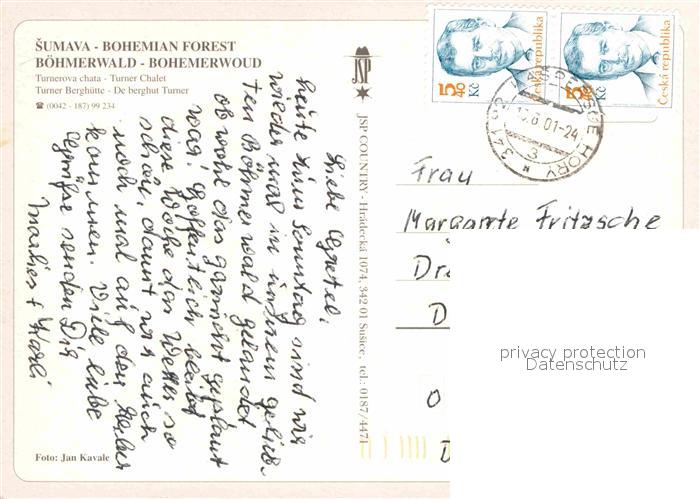 ŠUMAVA - BOHEMIAN FOREST
BÖHMERWALD - BOHEMERWOUD
Turnerova chata - Turner Chalet
Turner Berghütte - De berghut Turner
☎ (0042 - 187) 99 234
Liebe Gretel,
heute zum Sonntag sind wir
wieder mal in unserem gelieb-
ten Böhmerwald gelandet
obwohl das garnicht geplant
war. Hoffentlich bleibt
diese Woche das Wetter so
schön, damit wir auch
noch mal auf den
kommen. Viele liebe
Grüße senden Dir
Marlies + Karli
Foto: Jan Kavale
JSP
JSP COUNTRY - Hrádecká 1074, 342 01 Sušice, tel.: 0187/4471
5,40 Kč
Česká republika
5,40 Kč
Česká republika
HORY
341
.6.01-24
3
Frau
Margarete Fritzsche
Dr
D
O
D
privacy protection
Datenschutz